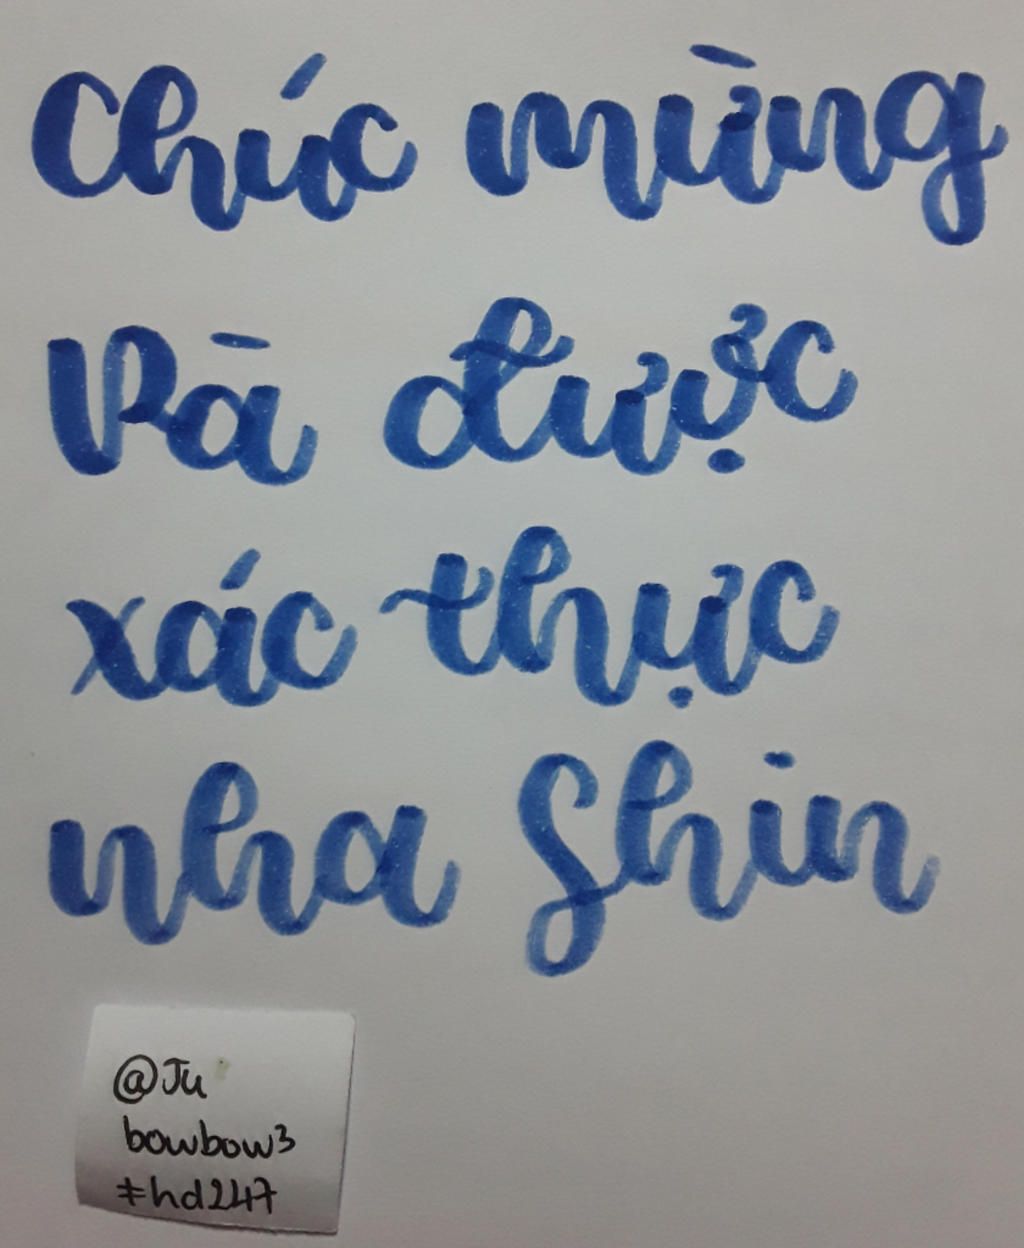 Chúc mừng
Và được
xác thực
nha Shin
@Ju
bowbow3
#hd247